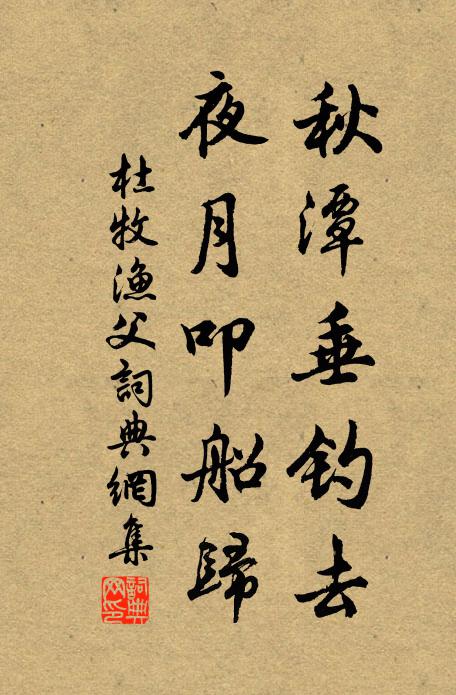 秋潭垂釣去
夜月叩船歸
杜牧漁父詞典網集
詞典網印